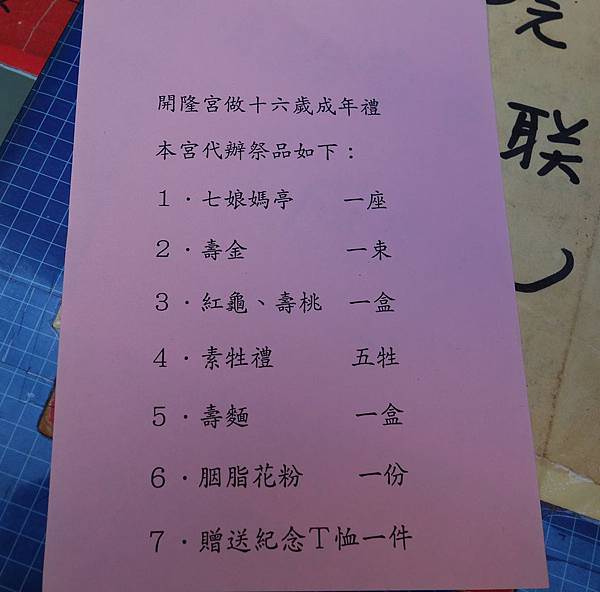 開隆宮做十六歲成年禮
本宮代辦祭品如下：
1．七娘媽亭 一座
2．壽金 一束
3．紅龜、壽桃 一盒
4．素牲禮 五牲
5．壽麵 一盒
6．胭脂花粉 一份
7．贈送紀念T恤一件
联